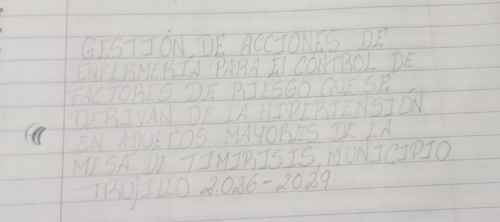 GESTIÓN DE ACCIONES DE
ENFERMERÍA PARA El CONTROL DE
FACTORES DE RIESGO QUE SE
DERIVAN DE LA HIPERTENSIÓN
EN ADULTOS MAYORES DE LA
MESA DE TIMIRISIS, MUNICIPIO
TRUJILLO 2.026-2029